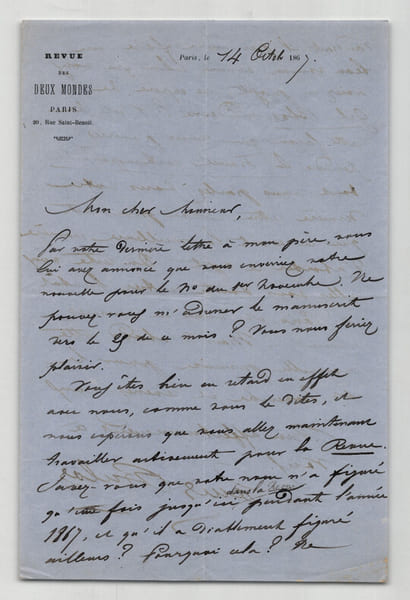 REVUE
DES
DEUX MONDES
PARIS
20, Rue Saint-Benoit.
Paris, le 14 Octob 1867.
Mon cher Monsieur,
Par votre dernière lettre à mon père, vous
lui avez annoncé que vous enverriez votre
nouvelle pour le No du 1er Novembre. Ne
pouvez-vous m'adresser le manuscrit
vers le 25 de ce mois ? Vous nous feriez
plaisir.
Vous êtes bien en retard en effet
avec nous, comme vous le dites, et
nous espérons que vous allez maintenant
travailler activement pour la Revue.
Savez-vous que votre nom n'a figuré
dans la Revue
qu'une fois jusqu'ici pendant l'année
1867, et qu'il a figuré
ailleurs ? Pourquoi cela ? Ne